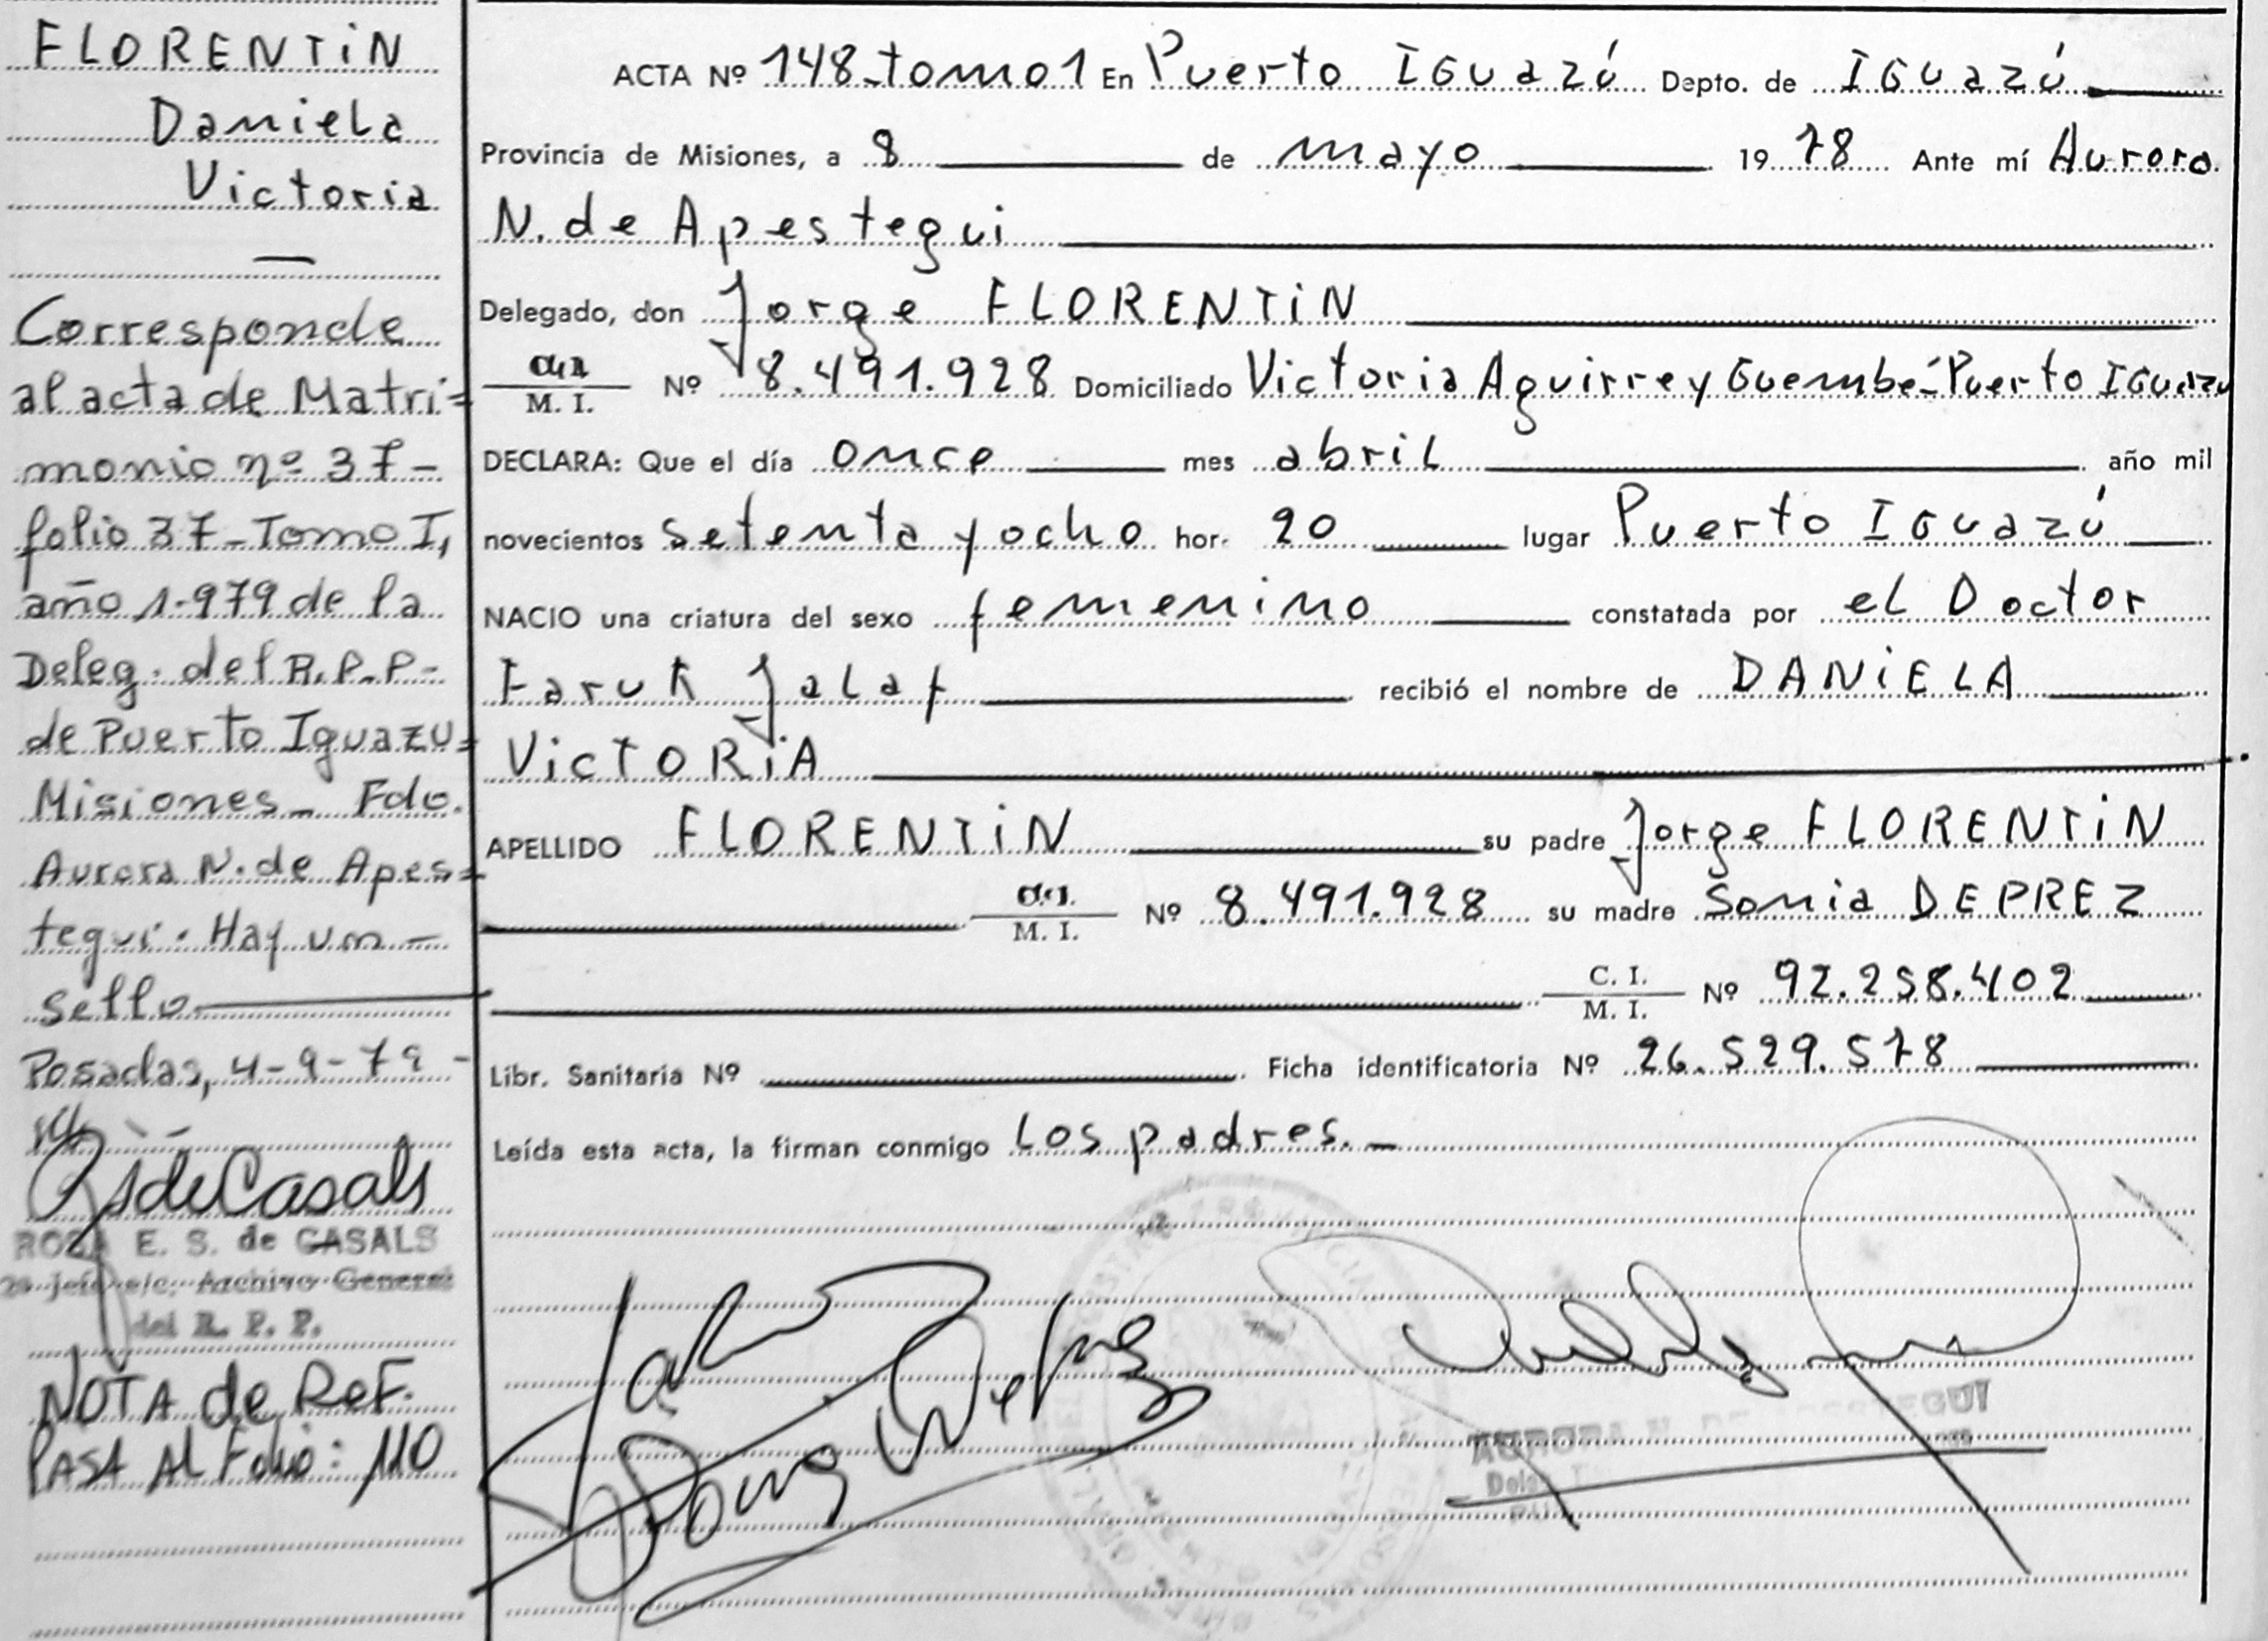 FLORENTiN
Daniela
Victoria
—
Corresponde
al acta de Matri=
monio nº 37-
folio 37-Tomo I,
año 1-979 de la
Deleg. del R.P.P-
de Puerto Iguazu=
Misiones- Fdo.
Aurora N. de Apes=
tegui. Hay un -
sello
Posadas, 4-9-79 -
RSdeCasals
ROSA E. S. de CASALS
Archivo General
del R. P. P.
NOTA de ReF.
PASA Al Folio: 110
ACTA Nº 148-tomo1 En Puerto IGuazú Depto. de IGuazú
Provincia de Misiones, a 8 de mayo 1978 Ante mí Aurora
N. de Apestegui
Delegado, don Jorge FLORENTiN
M. I. Nº 8.491.928 Domiciliado Victoria Aguirre y Guembé-Puerto IGuazu
DECLARA: Que el día once mes abril año mil
novecientos setenta y ocho hor. 20 lugar Puerto IGuazú
NACIO una criatura del sexo femenino constatada por el Doctor
Faruk Jalaf recibió el nombre de DANiELA
VicTORiA
APELLIDO FLORENTiN su padre Jorge FLORENTiN
M. I. Nº 8.491.928 su madre Sonia DEPREZ
C. I.
M. I. Nº 92.258.402
Libr. Sanitaria Nº Ficha identificatoria Nº 26.529.578
Leída esta acta, la firman conmigo los padres.-
Sonia Deprez
AURORA N. DE APESTEGUI